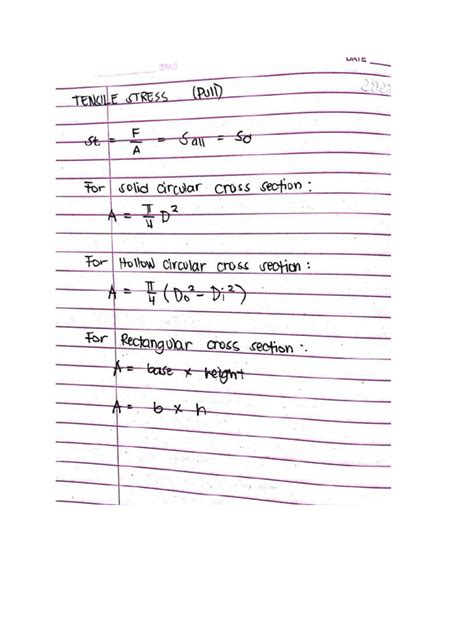 DATE
TENSILE STRESS (Pull)
St = F/A = Sall = Sd
For solid circular cross section :
A = π/4 D²
For Hollow circular cross section :
A = π/4 (Do² - Di²)
For Rectangular cross section :.
A = base x height
A = b x h